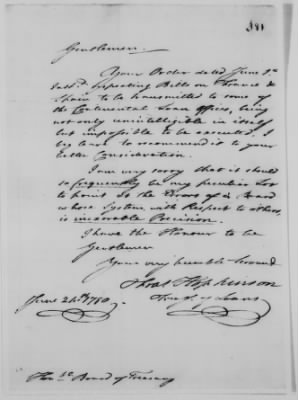 181
Gentlemen
Your Order dated June 3d
last respecting Bills on France &
Spain to be transmitted to some of
the Continental Loan offices, being
not only unintelligible in itself
but impossible to be executed, I
beg leave to recommend it to your
better Consideration.
I am very sorry that it should
so frequently be my peculiar Lot
to point at the Errors of a Board
whose System with Respect to others,
is inexorable Precision.
I have the Honour to be
Gentlemen
Your very humble Servant
Fras Hopkinson
Treasr of Loans
June 24th 1780
Honble Board of Treasury